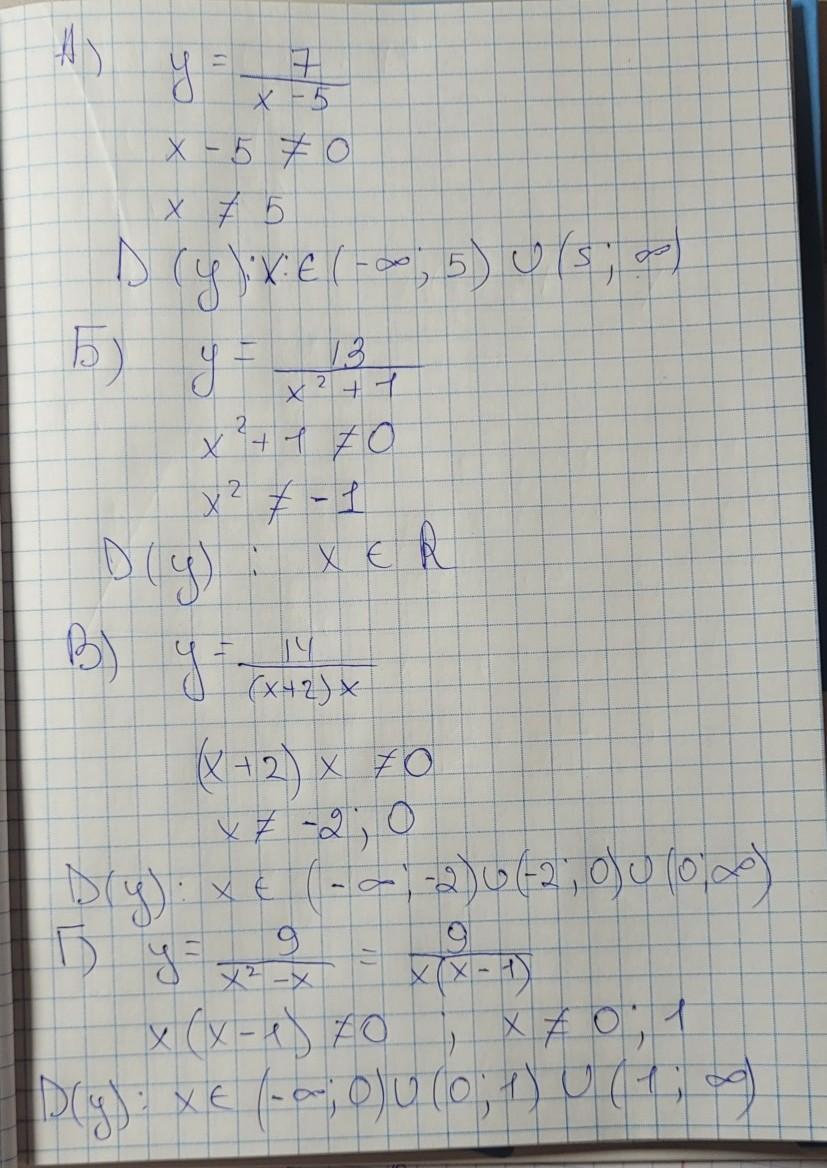 А) y = 7 / (x - 5)
x - 5 ≠ 0
x ≠ 5
D(y): x: ∈ (-∞; 5) ∪ (5; ∞)
Б) y = 13 / (x² + 1)
x² + 1 ≠ 0
x² ≠ -1
D(y) : x ∈ R
В) y = 14 / ((x+2)x)
(x+2) x ≠ 0
x ≠ -2; 0
D(y): x ∈ (-∞; -2) ∪ (-2; 0) ∪ (0; ∞)
Г) y = 9 / (x² - x) = 9 / (x(x-1))
x(x-1) ≠ 0 ; x ≠ 0; 1
D(y): x ∈ (-∞; 0) ∪ (0; 1) ∪ (1; ∞)